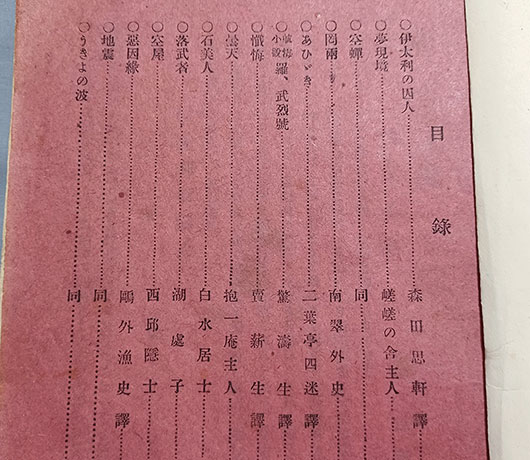 目錄
○伊太利の囚人……森田思軒譯
○夢現境……嵯嵯の舎主人
○空蟬……同
○罔兩……南翠外史
○あひゞき……二葉亭四迷譯
○小說 羅、武烈號……驚濤生譯
○懺悔……賣薪生譯
○曇天……抱一庵主人
○石美人……白水居士
○落武者……湖處子
○空屋……西邱隱士
○惡因緣……鷗外漁史譯
○地震……同
○うきよの波……同